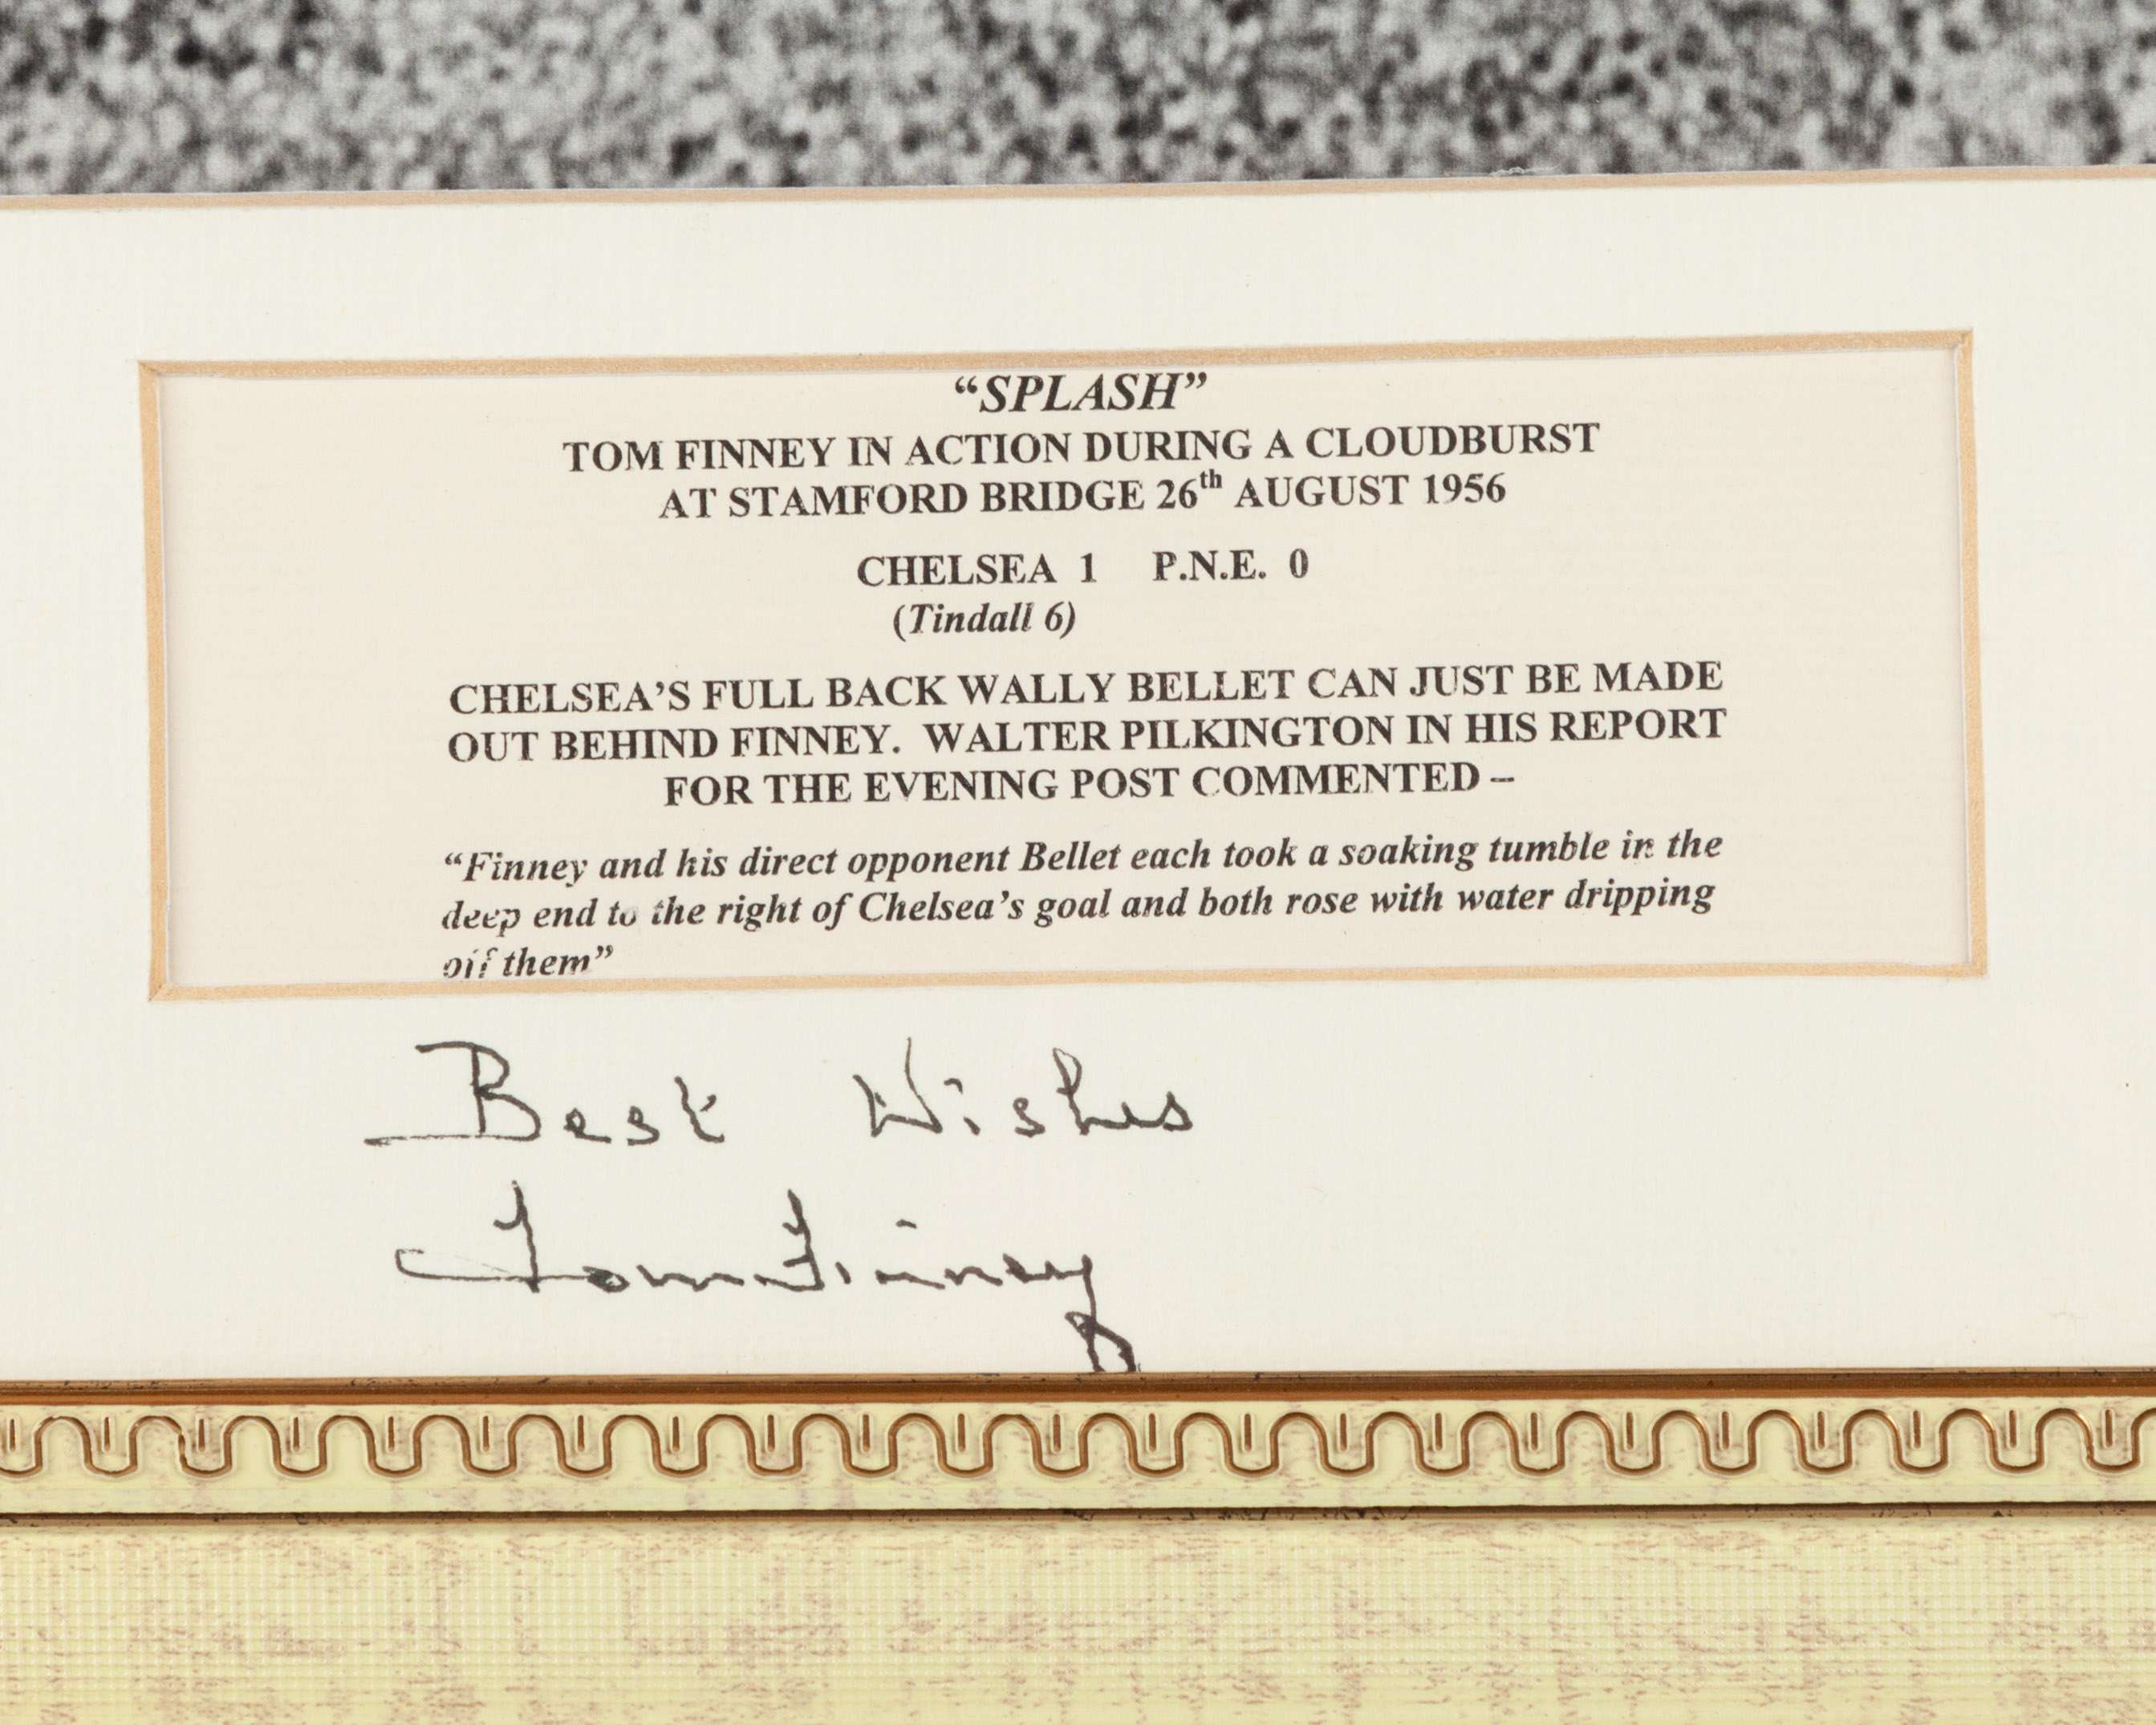 “SPLASH”
TOM FINNEY IN ACTION DURING A CLOUDBURST
AT STAMFORD BRIDGE 26th AUGUST 1956
CHELSEA 1 P.N.E. 0
(Tindall 6)
CHELSEA’S FULL BACK WALLY BELLET CAN JUST BE MADE
OUT BEHIND FINNEY. WALTER PILKINGTON IN HIS REPORT
FOR THE EVENING POST COMMENTED –
“Finney and his direct opponent Bellet each took a soaking tumble in the
deep end to the right of Chelsea’s goal and both rose with water dripping
off them”
Best Wishes
Tom Finney